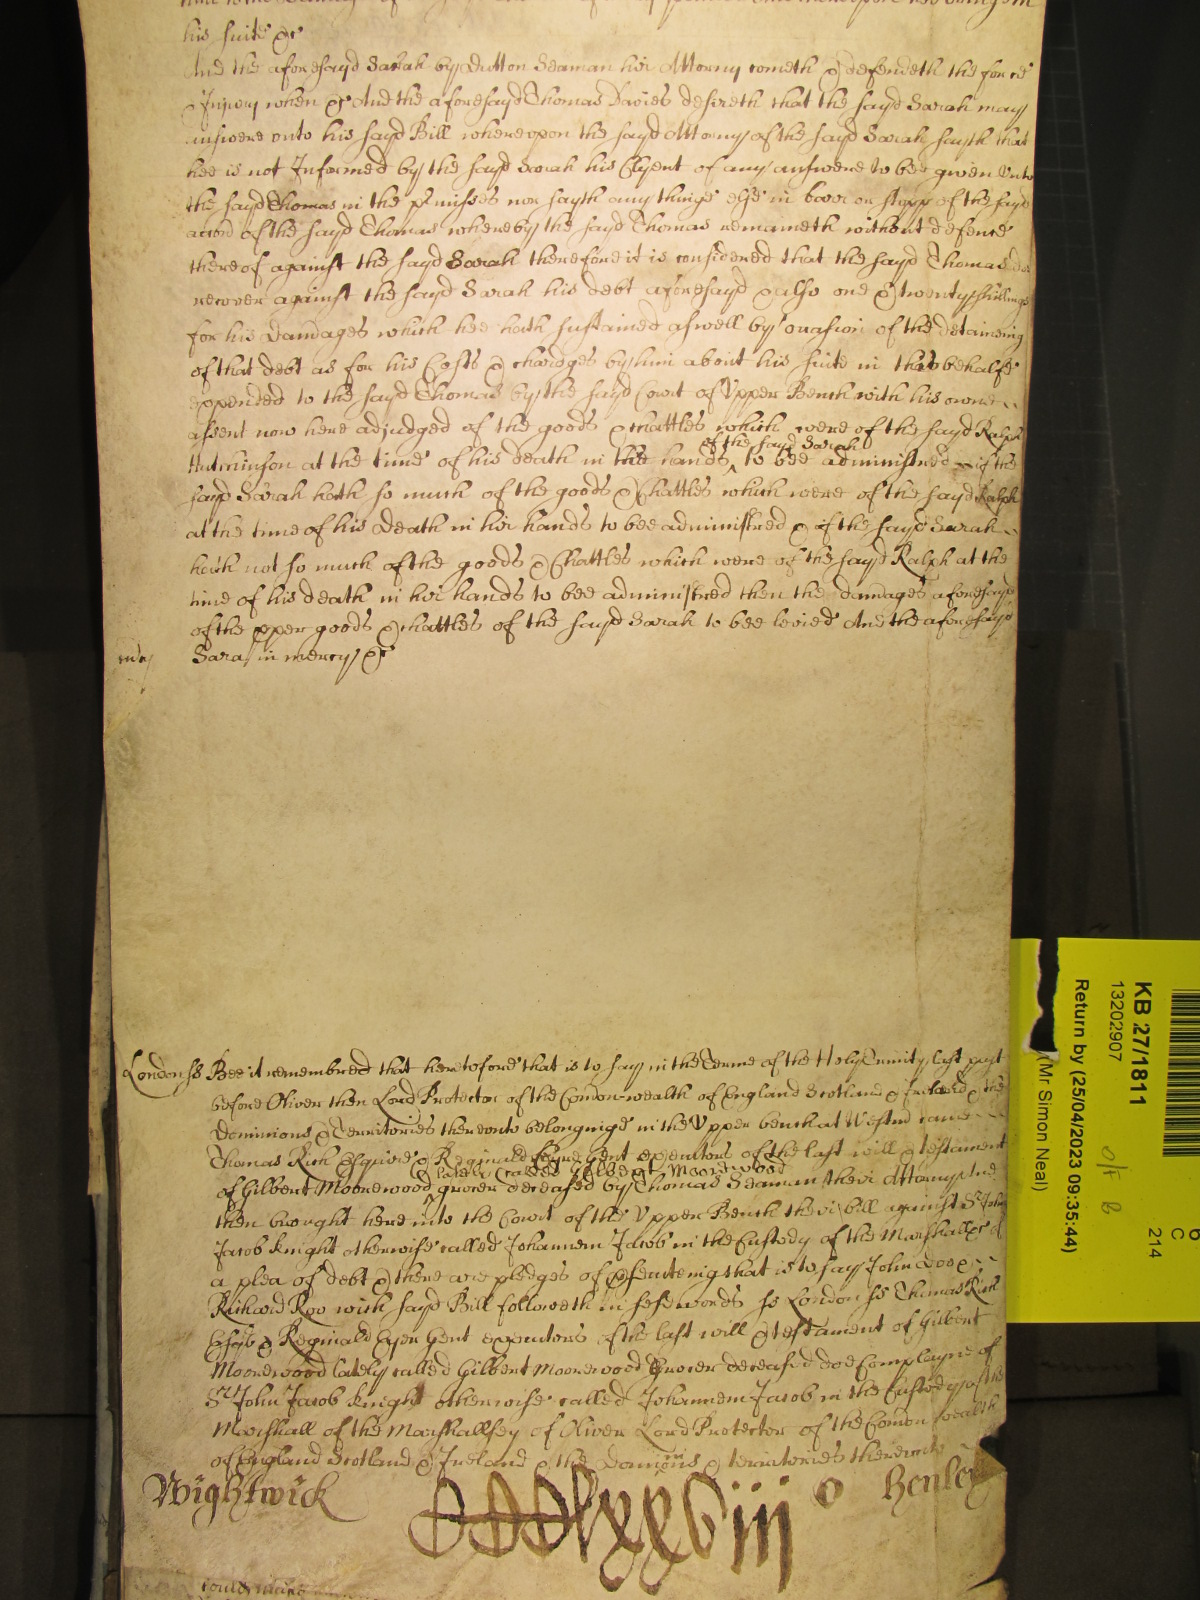 his suite &c
And the aforesayd Sarah by Dutton Seaman her Attorny cometh & defendeth the force
& Injury when &c And the aforesayd Thomas Davies desireth that the sayd Sarah may
answere vnto his sayd Bill wherevpon the sayd Attorny of the sayd Sarah sayth that
hee is not Informed by the sayd Sarah his Clyent of any answere to bee given vnto
the sayd Thomas in the p'misses nor sayth any thinge else in barr or stopp of the sayd
accon of the sayd Thomas whereby the sayd Thomas remaineth without defence
thereof against the sayd Sarah therefore it is considered that the sayd Thomas doe
recover against the sayd Sarah his debt aforesayd & also one & twenty shillings
for his damages which hee hath sustained aswell by occasion of the detaineing
of that debt as for his Costs & chardges by him about his suite in that behalfe
expended to the sayd Thomas by the sayd Court of Vpper Bench with his owne
assent now here adjudged of the goods & chattles which were of the sayd Ralph
Hutchinson at the time of his death in the hands of the sayd Sarah to bee administred if the
sayd Sarah hath so much of the goods & Chattles which were of the sayd Ralph
at the time of his death in her hands to bee administred & if the sayd Sarah
hath not so much of the goods & Chattles which were of the sayd Ralph at the
time of his death in her hands to bee administred then the damages aforesayd
of the pper goods & chattles of the sayd Sarah to bee levied And the aforesayd
Sara in mercy &c
mcy
London ss Bee it remembred that heretofore that is to say in the Terme of the Holy Trinity last past
before Oliver then Lord Protector of the Comonwealth of England Scotland & Ireland & the
Dominions & Territories therevnto belonginge in the Vpper bench at Westm came
Thomas Rich Esquire & Reginald Eyre gent executors of the last will & testament
of Gilbert Moorewood & lately called Gilbert Moorewood grocer deceased by Thomas Seaman their Attorny And
then brought here into the Court of the Vpper Bench their bill against Sr John
Jacob Knight otherwise called Johannem Jacob in the Custody of the Marshall &c of
a plea of debt & there are pledges of psecuteing that is to say John Doe &
Richard Roo which sayd Bill followeth in these words ss London ss Thomas Rich
Esqr & Reginald Eyer Gent executors of the last will & testament of Gilbert
Moorewood lately called Gilbert Moorewood Grocer deceased doe Complayne of
Sr John Jacob Knight otherwise called Johannem Jacob in the Custody of the
Marshall of the Marshallsey of Oliver Lord Protector of the Comon wealth
of England Scotland & Ireland & the Dominions & territories therevnto
Wightwick
Henley
KB 27/1811
13202907
Return by (25/04/2023 09:35:44)
(Mr Simon Neal)
o/f B
6
C
214